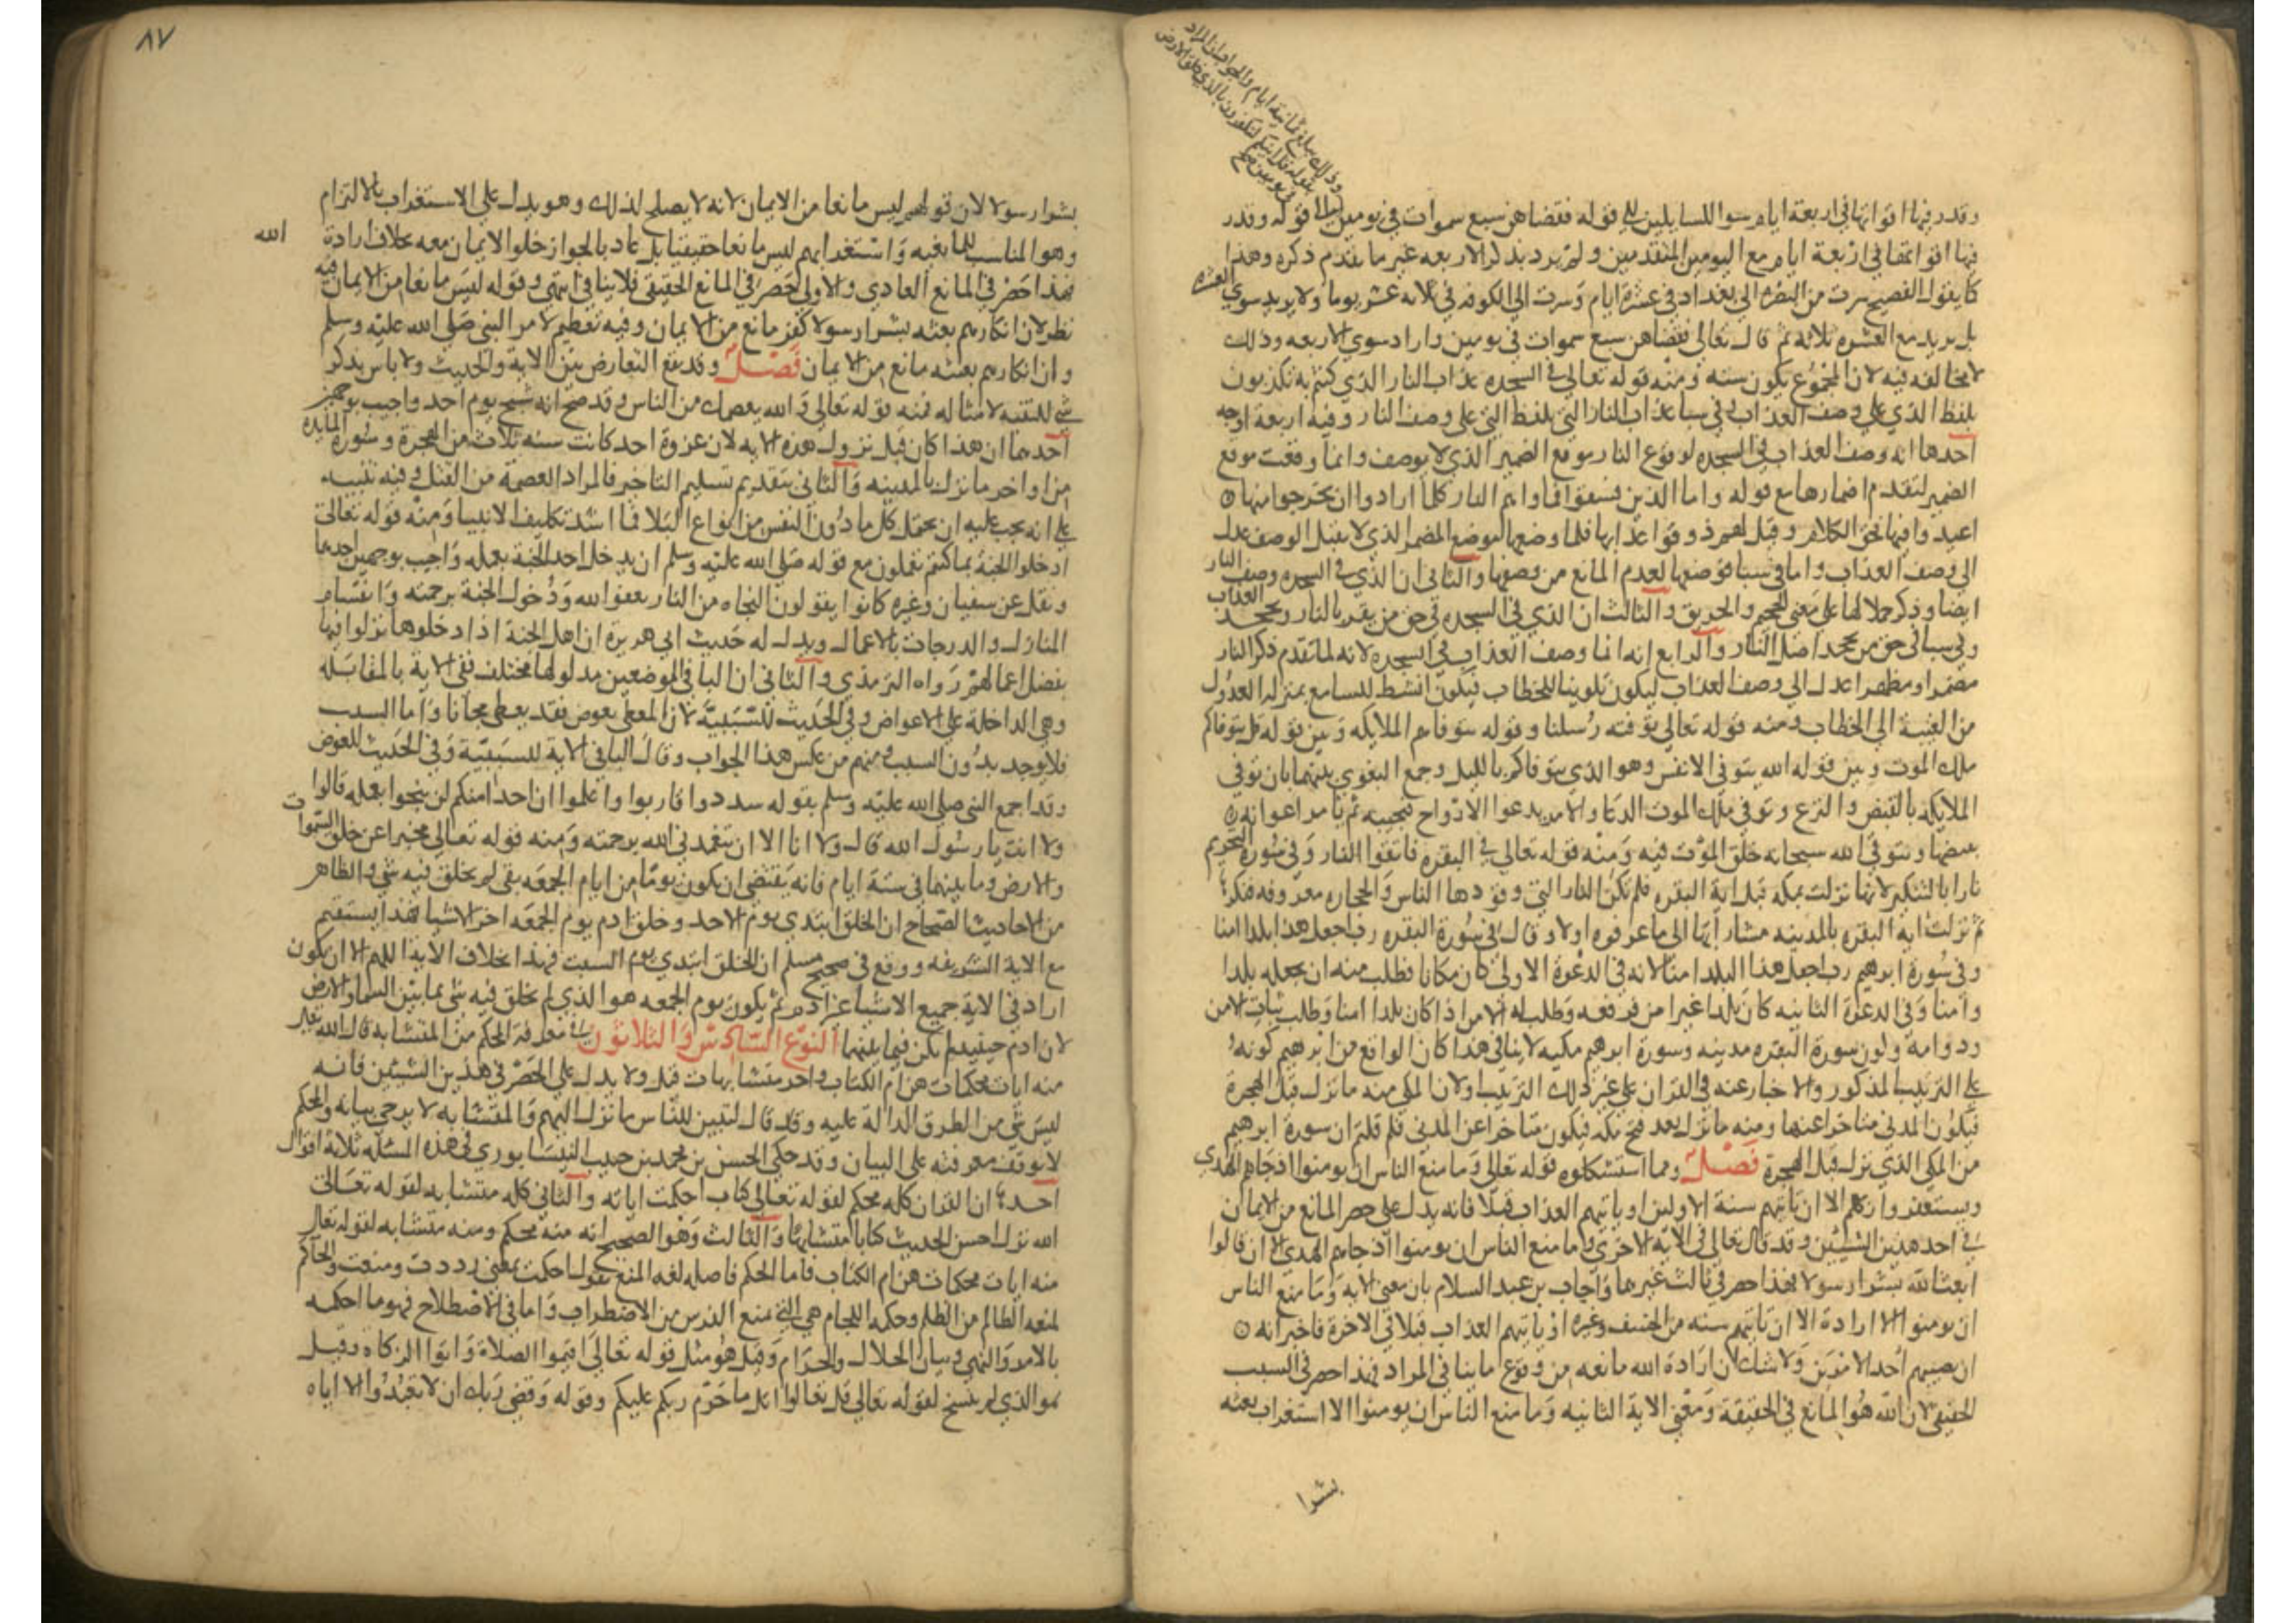 وذلك يبلغ ثمانية ايام والجواب ان المراد
بقوله قل ائنكم لتكفرون بالذي خلق الارض
في يومين نعم
وقدر فيها اقواتها في اربعة ايام سوا للسايلين الي قوله فقضاهن سبع سموات في يومين قوله وقدر
فيها اقواتها في اربعة ايام مع اليومين المتقدمين ولم يرد بذكر الاربعه غير ما تقدم ذكره وهذا
كما يقول الفصيح سرت من البصره الي بغداد في عشرة ايام وسرت الي الكوفه في ثلاثه عشر يوما ولا يريد سوي العشره
بل يريد مع العشره ثلاثه ثم قال تعالي فقضاهن سبع سموات في يومين واراد سوي الاربعه وذلك
لا مخالفه فيه لان المجموع يكون سته ومنه قوله تعالي في السجده عذاب النار الذي كنتم به تكذبون
بلفظ الذي علي وصف العذاب وفي سبا عذاب النار التي بلفظ التي علي وصف النار وفيه اربعة اوجه
احدها انه وصف العذاب في السجده لوقوع النار موقع الضمير الذي لا يوصف وانما وقعت موقع
الضمير لتقدم اضمارها مع قوله واما الذين فسقوا فماواهم النار كلما ارادوا ان يخرجوا منها
اعيدوا فيها فحق الكلام وقيل لهم ذوقوا عذابها فلما وضعها موضع المضمر الذي لا يقبل الوصف عدل
الي وصف العذاب واما في سبا فوصفها لعدم المانع من وصفها والثاني ان الذي في السجده وصف النار
ايضا وذكر حملا لها علي معني الجحيم والحريق والثالث ان الذي في السجده في حق من يقر بالنار ويجحد العذاب
وفي سبا في حق من يجحد اصل النار والرابع انه انما وصف العذاب في السجده لانه لما تقدم ذكر النار
مضمرا ومظهرا عدل الي وصف العذاب ليكون تلوينا للخطاب فيكون انشط للسامع بمنزلة العدول
من الغيبة الي الخطاب ومنه قوله تعالي توفته رسلنا وقوله تتوفاهم الملايكه وبين قوله قل يتوفاكم
ملك الموت وبين قوله الله يتوفي الانفس وهو الذي يتوفاكم بالليل وجمع البغوي بينهما بان توفي
الملايكه بالقبض والنزع وتوفي ملك الموت الدعا والامر يدعوا الارواح فتجيبه ثم يامر اعوانه
بقبضها وتوفي الله سبحانه خلق الموت فيه ومنه قوله تعالي في البقره فاتقوا النار وفي سورة التحريم
نارا بالتنكير لانها نزلت بمكه قبل اية البقره فلم تكن النار التي وقودها الناس والحجاره معروفه فنكرها
ثم نزلت اية البقره بالمدينه مشارا بها الي ما عرفوه اولا وقال في سورة البقره رب اجعل هذا بلدا امنا
وفي سورة ابرهيم رب اجعل هذا البلد امنا لانه في الدعوة الاولي كان مكانا فطلب منه ان يجعله بلدا
وامنا وفي الدعوة الثانيه كان بلدا غير امن فعرفه وطلب له الامن او كان بلدا امنا وطلب ثبات الامن
ودوامه وكون سورة البقره مدنيه وسورة ابرهيم مكيه لا ينافي هذا لان الواقع من ابرهيم كونه
علي الترتيب المذكور والاخبار عنه في القران علي غير ذلك الترتيب ولان المكي منه ما نزل قبل الهجرة
فيكون المدني متاخرا عنها ومنه ما نزل بعد فتح مكه فيكون متاخرا عن المدني فلم قلتم ان سورة ابرهيم
من المكي الذي نزل قبل الهجرة فصل ومما استشكلوه قوله تعالي وما منع الناس ان يومنوا اذ جاهم الهدي
ويستغفروا ربهم الا ان تاتيهم سنة الاولين او ياتيهم العذاب قبلا فانه يدل علي حصر المانع من الايمان
في احد هذين الشيئين وقد قال تعالي في الاية الاخري وما منع الناس ان يومنوا اذ جاهم الهدي الا ان قالوا
ابعث الله بشرا رسولا فهذا حصر في ثالث غيرهما واجاب بن عبد السلام بان معني الاية وما منع الناس
ان يومنوا الا ارادة الا ان تاتيهم سنه من الخسف وغيره او ياتيهم العذاب قبلا في الاخرة فاخبر انه
ان يصيبهم احد الامرين ولا شك ان ارادة الله مانعه من وقوع ما ينافي المراد فهذا حصر في السبب
الحقيقي لان الله هو المانع في الحقيقة ومعني الاية الثانيه وما منع الناس ان يومنوا الا استغراب بعثه
بشرا
٨٧
بشرا رسولا لان قولهم ليس مانعا من الايمان لانه لا يصلح لذلك وهو يدل علي الاستغراب بالالتزام
وهو المناسب للمانعيه واستغرابهم ليس مانعا حقيقيا بل عاديا لجواز خلوا الايمان معه بخلاف ارادة الله
فهذا حصر في المانع العادي والاولي حصر في المانع الحقيقي فلا تنافي انتهي وقوله ليس مانعا من الايمان فيه
نظر لان انكارهم بعثه بشرا رسولا كفر مانع من الايمان وفيه تعظيم لامر النبي صلي الله عليه وسلم
وان انكارهم بعثه مانع من الايمان فصل وقد يقع التعارض بين الاية والحديث ولا باس بذكر
شي للتنبه لامثاله فمنه قوله تعالي والله يعصمك من الناس وقد صح انه شج يوم احد واجيب بوجهين
احدهما ان هذا كان قبل نزول هذه الايه لان غزوة احد كانت سنه ثلاث من الهجرة وسورة المايده
من اواخر ما نزل بالمدينه والثاني بتقدير تسليم التاخير فالمراد العصمة من القتل وفيه تنبيه
علي انه يجب عليه ان يحتمل كل ما دون النفس من انواع البلا فما اشد تكليف الانبيا ومنه قوله تعالي
ادخلوا الجنة بما كنتم تعملون مع قوله صلي الله عليه وسلم لن يدخل احد الجنة بعمله واجيب بوجهين احدهما
ونقل عن سفيان وغيره كانوا يقولون النجاه من النار بعفو الله ودخول الجنة برحمته وانقسام
المنازل والدرجات بالاعمال ويدل له حديث ابي هريرة ان اهل الجنة اذا دخلوها نزلوا فيها
بفضل اعمالهم رواه الترمذي والثاني ان البا في الموضعين مدلولها مختلف ففي الاية بالمقابله
وهي الداخلة علي الاعواض وفي الحديث للسببية لان المعطي بعوض قد يعطي مجانا واما السبب
فلا يوجد بدون السبب ومنهم من عكس هذا الجواب وقال البا في الاية للسببية وفي الحديث للعوض
وقد جمع النبي صلي الله عليه وسلم بقوله سددوا وقاربوا واعلموا ان احدا منكم لن ينجوا بعمله قالوا
ولا انت يا رسول الله قال ولا انا الا ان يتغمدني الله برحمته ومنه قوله تعالي مخبرا عن خلق السموات
والارض وما بينهما في ستة ايام فانه يقتضي ان يكون يوما من ايام الجمعه بقي لم يخلق فيه شي والظاهر
من الاحاديث الصحاح ان الخلق ابتدي يوم الاحد وخلق ادم يوم الجمعه اخر الاشيا فهذا يستقيم
مع الاية الشريفه ووقع في صحيح مسلم ان الخلق ابتدي يوم السبت فهذا بخلاف الاية اللهم الا ان يكون
اراد في الاية جميع الاشيا غير ادم ثم يكون يوم الجمعه هو الذي لم يخلق فيه شي مما بين السما والارض
لان ادم حينيذ لم يكن فيما بينهما النوع السادس والثلاثون في معرفة المحكم من المتشابه قال الله تعالي
منه ايات محكمات هن ام الكتاب واخر متشابهات قيل ولا يدل علي الحصر في هذين الشيئين فانه
ليس شي من الطرق الدالة عليه وقد قال لتبين للناس ما نزل اليهم والمتشابه لا يرجي بيانه والمحكم
لا توقف معرفته علي البيان وقد حكي الحسن بن محمد بن حبيب النيسابوري في هذه المسئله ثلاثة اقوال
احدها ان القران كله محكم لقوله تعالي كتاب احكمت اياته والثاني كله متشابه لقوله تعالي
الله نزل احسن الحديث كتابا متشابها والثالث وهو الصحيح انه منه محكم ومنه متشابه لقوله تعالي
منه ايات محكمات هن ام الكتاب فاما المحكم فاصله لغه المنع تقول احكمت بمعني رددت ومنعت والحاكم
لمنعه الظالم من الظلم وحكمة اللجام هي التي تمنع الفرس من الاضطراب واما في الاصطلاح فهو ما احكمه
بالامر والنهي وبيان الحلال والحرام وقيل هو مثل قوله تعالي اقيموا الصلاة واتوا الزكاه وقيل
هو الذي لم ينسخ لقوله تعالي قل تعالوا اتل ما حرم ربكم عليكم وقوله وقضي ربك ان لا تعبدوا الا اياه